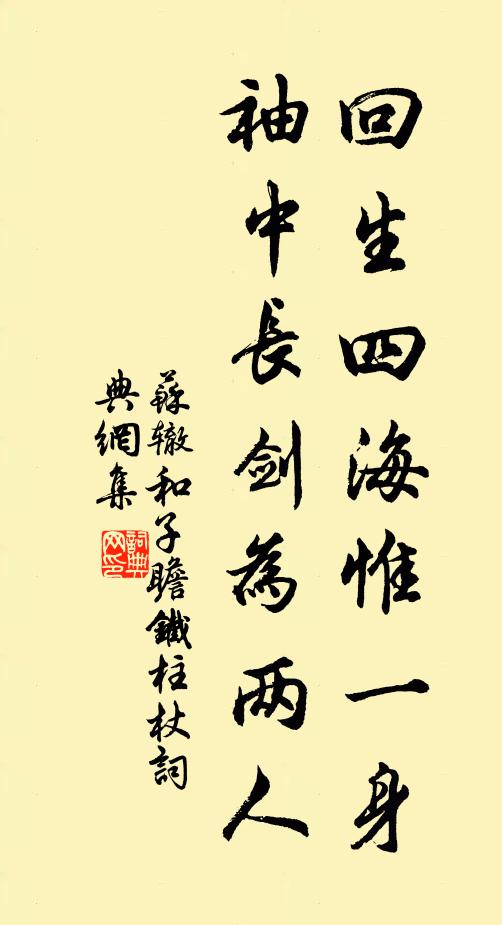 回生四海惟一身
袖中長剑為两人
蘇辙和子瞻鐵柱杖詞
典網集
詞典
网印